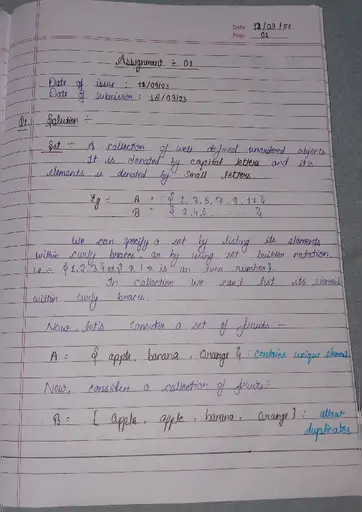 Date 12/09/23
Page 01
Assignment : 01
Date of issue : 12/09/23
Date of submission : 18/09/23
Q1. Solution :-
Set :- A collection of well defined unordered objects.
It is denoted by capital letters and its
elements is denoted by small letters.
Eg = A = { 1, 3, 5, 7, 9, 11 }
B = { 2, 4, 6, ....... }
We can specify a set by listing its elements
within curly braces, or by using set builder notation.
i.e = {1,2,3,4} or { x | x is an even number}.
In collection we can't list its element
within curly braces.
Now, let's consider a set of fruits :-
A = { apple, banana, orange } : contains unique element
Now, consider a collection of fruits:-
B = [ apple, apple, banana, orange ] : allow
duplicates